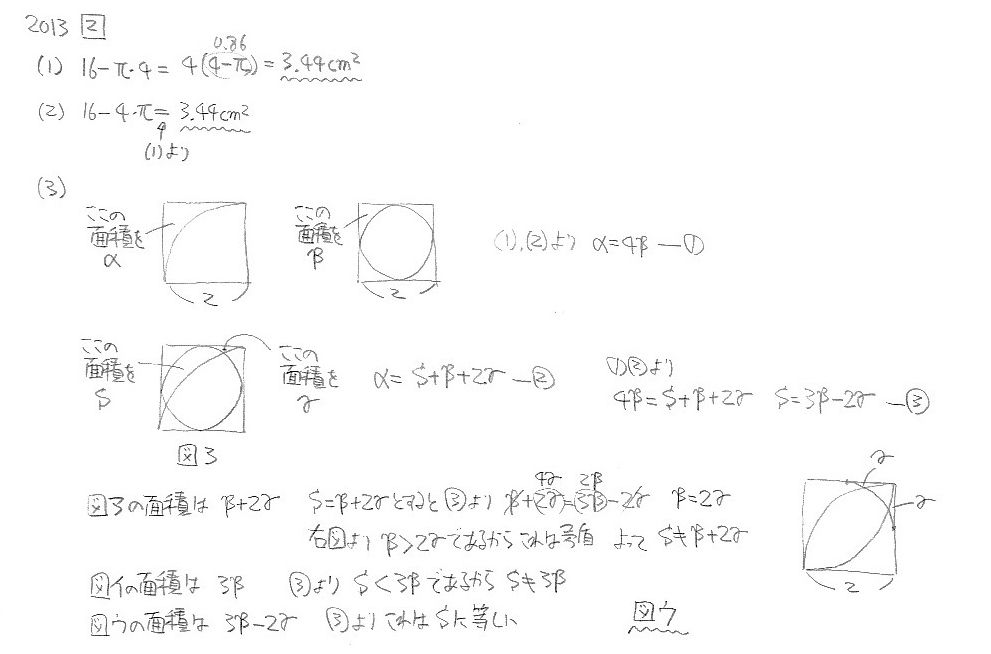 2013 2
0.86
(1) 16-π・4 = 4(4-π) = 3.44cm²
(2) 16-4・π = 3.44cm²
(1)より
(3)
ここの
面積を
α
2
ここの
面積を
β
2
(1),(2)より α=4β ―①
ここの
面積を
S
図3
ここの
面積を
γ
α= S+β+2γ ―②
①②より
4β=S+β+2γ S=3β-2γ ―③
4γ 2β
図アの面積は β+2γ S=β+2γとすると③より β+2γ=3β-2γ β=2γ
右図より β>2γであるからこれは矛盾 よって S≠β+2γ
γ
γ
2
図イの面積は 3β ③より S<3βであるから S≠3β
図ウの面積は 3β-2γ ③よりこれはSに等しい
図ウ